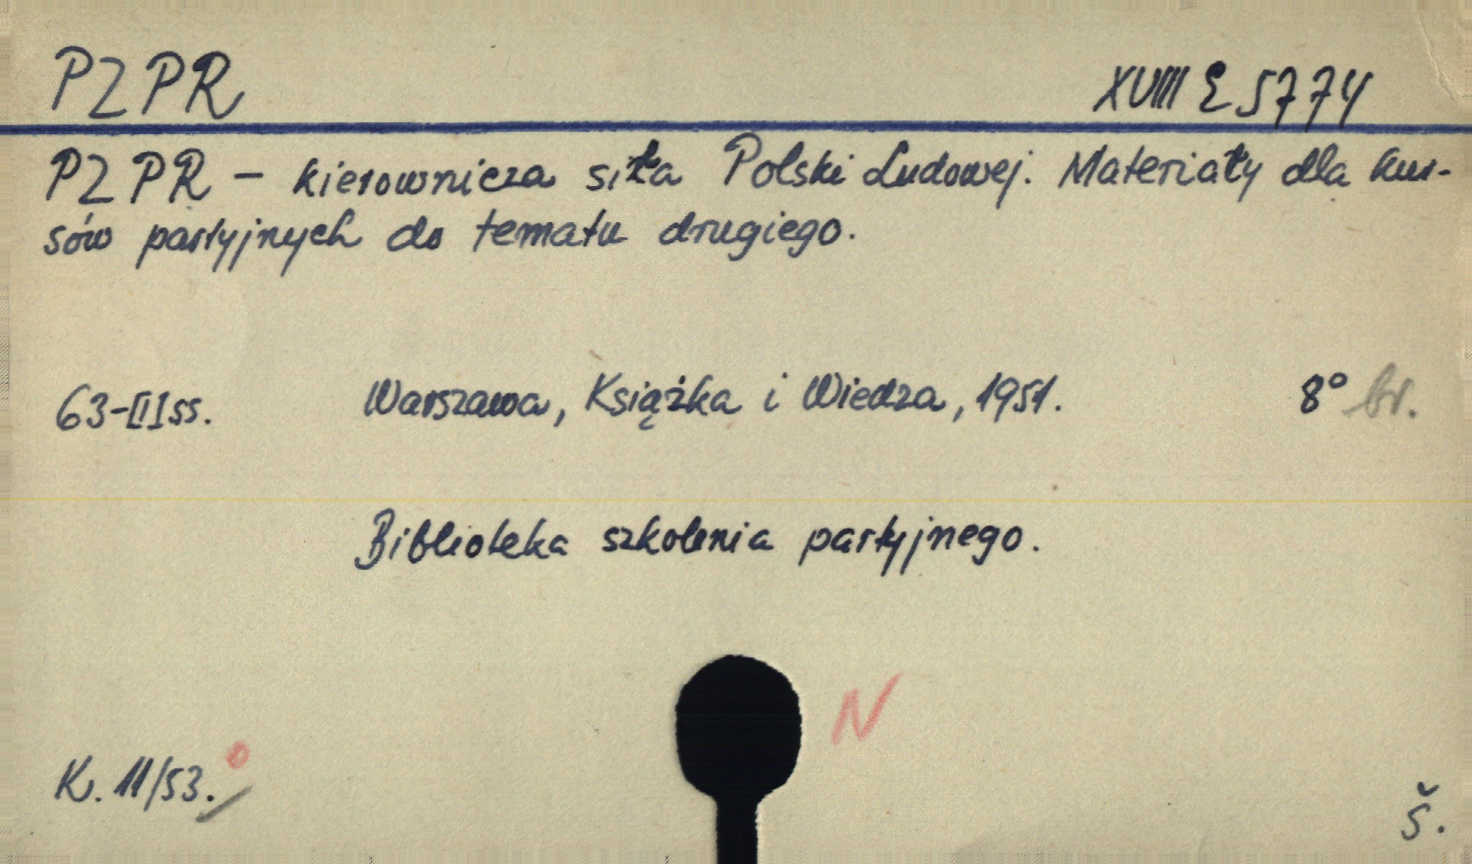 PZPR XVIII E 5774
PZPR - kierownicza siła Polski Ludowej. Materiały dla kur-
sów partyjnych do tematu drugiego.
63-[I]ss. Warszawa, Książka i Wiedza, 1951. 8° br.
Biblioteka szkolenia partyjnego.
N
K. 11/53.
Š.